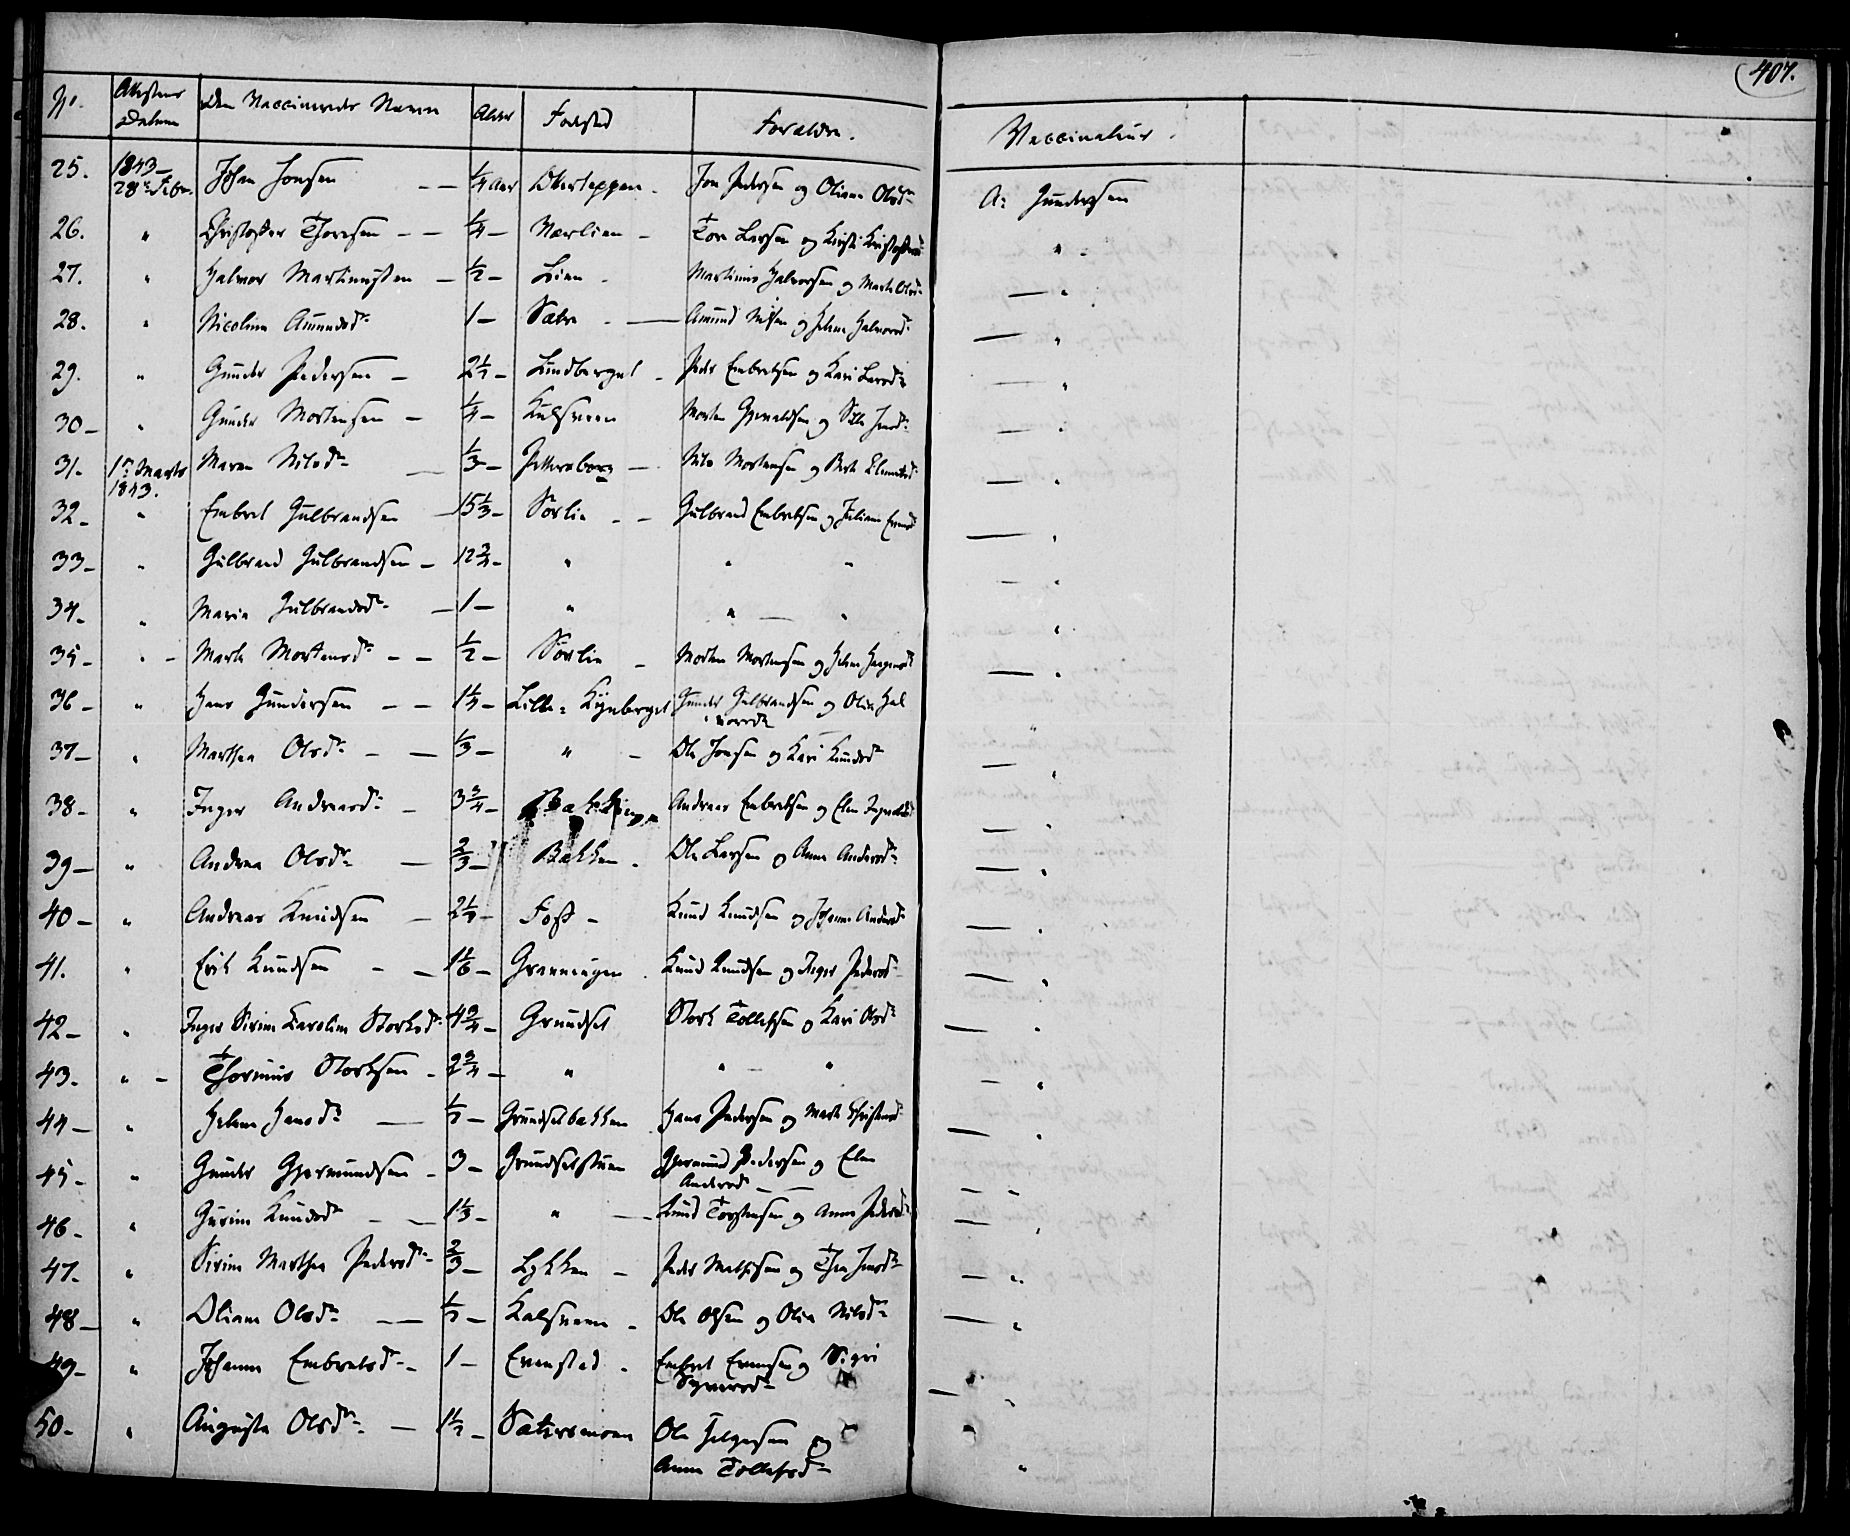 407.
No. Attestens Datum Den Vaccineredes Navn Alder Fødested Forældre. Vaccinateur.
25. 1843 28de Febr. Johan Jonsen — — 1/4 Aar Oksteppen - Jon Pedersen og Oliane Olsdr A: Gundersen
26. " Christoffer Thoresen — — 1/4 — Nærlien — Tore Larsen og Kirsti Kristoffersd "
27. " Halvor Martinussen — 1/2 — Lien - Martinus Halvorsen og Marte Olsd — "
28. " Nicoline Amundsdr 1 — Sætre - — Amund Nilsen og Helene Halvorsdr — "
29. " Gunder Pedersen — 2 1/2 — Lundberget - Peder Embretsen og Kari Larsdr "
30 — " Gunder Mortensen — 1/4 — Kulsveen Morten og Jensdr — "
31. 1ste Marts 1843. Maren Nilsdr — 1/3 — Pettersborg — Nils Mortensen og Berte — "
32 — " Embret Gulbrandsen — 15 1/3 — Sørlie — — Gulbrand Embretsen og Juliane — "
33 — " Gulbrand Gulbrandsen — 12 3/4 — " " " — "
34 — " Marie Gulbrandsdr — 1 — " " — " "
35 — " — Marte Mortensdr — — 1/2 — Sørlie — Morten Mortensen og Helene — "
36 — " Hans Gundersen — — 1 1/2 — Lille = Kynberget Gunder Gulbrandsen og Olia Hal
vorsdr "
37 — " Marthea Olsdr — — 1/3 — " — Ole Jonsen og Kari Knudsdr — "
38 — " Inger Andreasdr — 3 3/4 — Andreas Embretsen og Elen — "
39 — " Andrea Olsdr — 2/3 — Bakken - Ole Larsen og Anne Andersdr — "
40 — " Andreas Knudsen — 2 1/2 — Foss — Knud Knudsen og Johanne Andersdr — "
41. " Erik Knudsen — — 1 1/6 — Grønneugen - Knud Knudsen og Inger Pedersdr — "
42 — " Inger Sirine Karoline Storksdr 4 3/4 — Grundset Stork Tollefsen og Kari Olsdr — "
43. " — Thorinus Storksen — 2 3/4 — " " " — "
44 — " Helene Hansdr — 1/2 — Grundsetbakken Hans Pedersen og Marte — "
45 — " Gunder Gjermundsen — 3 — Grundsetstuen Gjermund Pedersen og Elen
Andersdr — — — "
46 — " Gurine Knudsdr — — 1 1/3 — " — Knud Torstensen og Anne Pedersdr — "
47. " Sirine Marthea Pedersdr 2/3 — Lykken — Peder Mathisen og Thea Jonsdr — "
48 — " Oliane Olsdr — — 1/2 — Kalsveen — Ole Olsen og Olia Nilsdr — "
49 — " Johanne Embretsdr — 1 — Evenstad - Embret Evensen og Sigri
Syversdr — "
50 — " Augusta Olsdr — 1 1/2 — Sætersmoen Ole Helgesen og
Anne Tollefsdr "